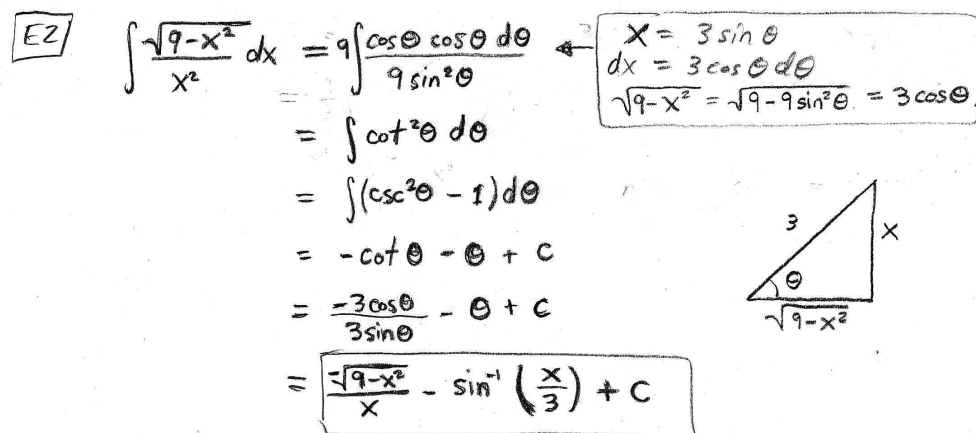 E2 ∫ √(9-x²)/x² dx = 9∫ cosθ cosθ dθ / 9 sin²θ ←
x = 3 sin θ
dx = 3 cos θ dθ
√(9-x²) = √(9-9sin²θ) = 3 cosθ.
= ∫ cot²θ dθ
= ∫(csc²θ - 1)dθ
= -cot θ - θ + C
= -3cosθ / 3sinθ - θ + C
= -√(9-x²) / x - sin⁻¹ (x/3) + C
3
x
θ
√(9-x²)